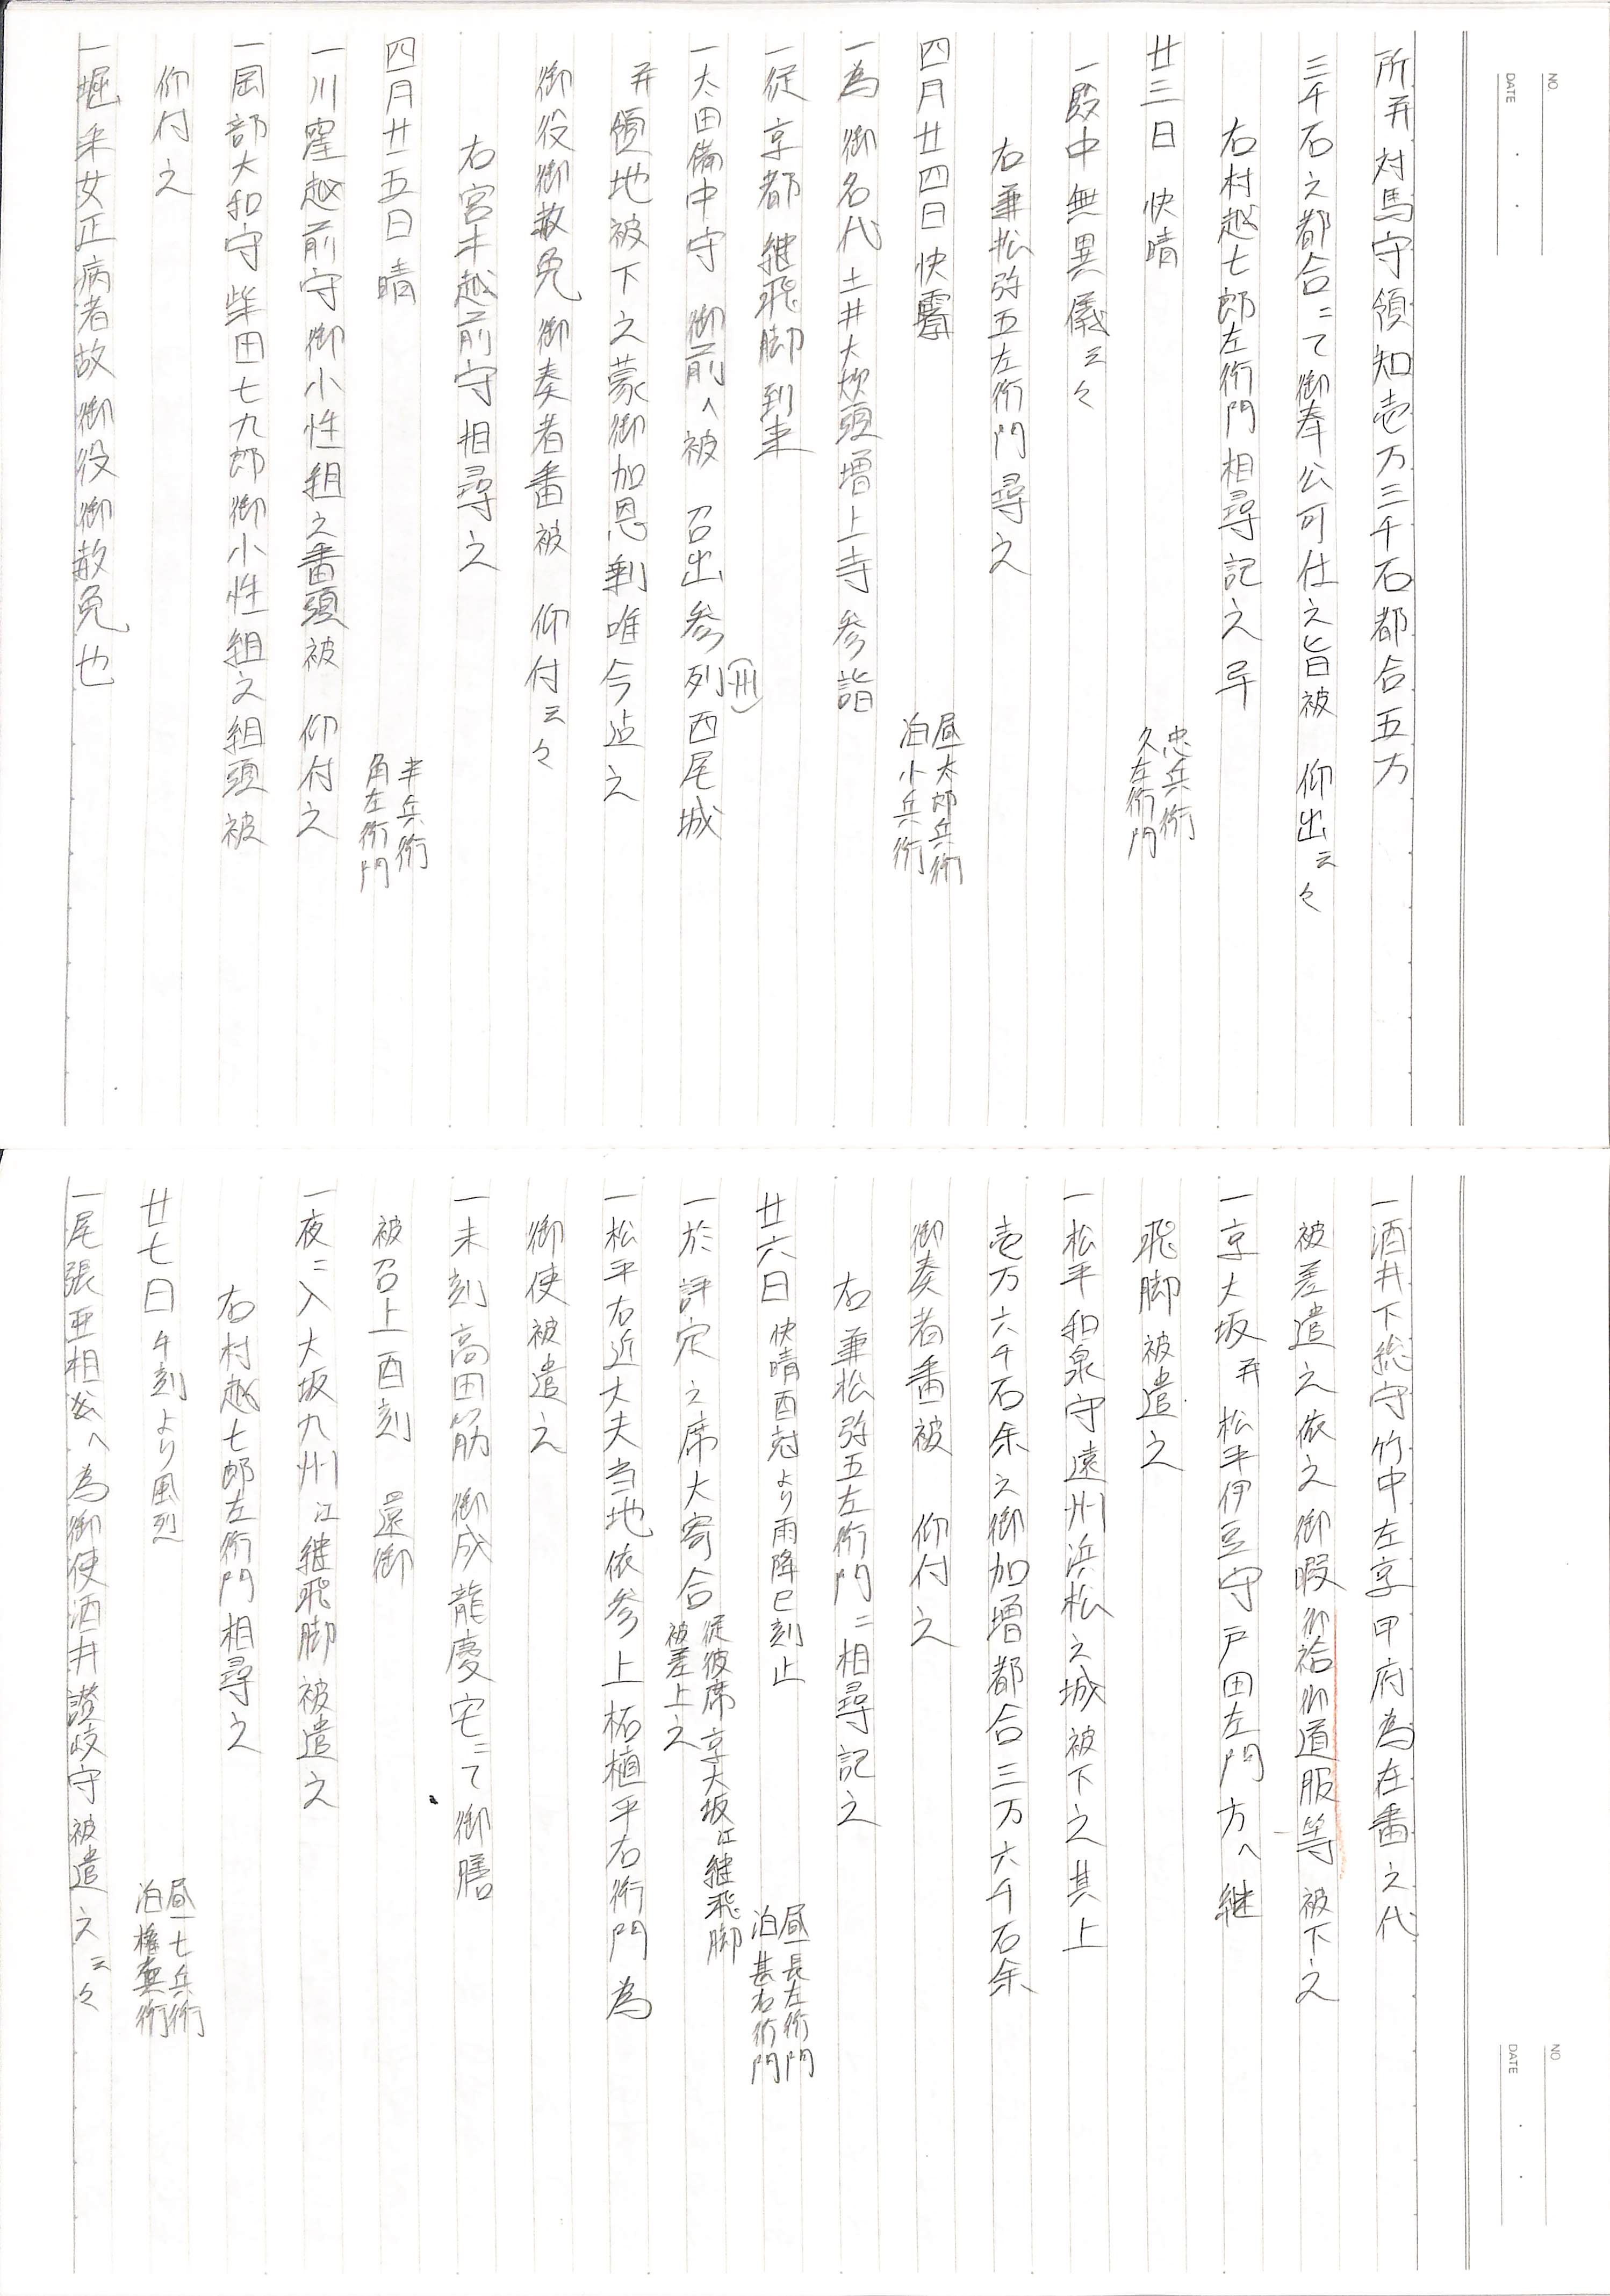 NO.
DATE
所并対馬守領知壱万三千石都合五万
三千石之都合ニて御奉公可仕之旨被 仰出云々
右村越七郎左衛門相尋記之畢
廿三日 快晴 忠兵衛 久左衛門
一殿中無異儀云々
右兼松弥五左衛門尋之
四月廿四日快霽 昼太郎兵衛 泊小兵衛
一為 御名代土井大炊頭増上寺参詣
一従京都継飛脚到来
一太田備中守 御前へ被 召出参列(州)西尾城
并領地被下之蒙御加恩剰唯今迄之
御役御赦免御奏者番被 仰付云々
右宮木越前守相尋之
四月廿五日晴 半兵衛 角左衛門
一川窪越前守御小性組之番頭被 仰付之
一岡部大和守柴田七九郎御小性組之組頭被
仰付之
一堀采女正病者故御役御赦免也
NO.
DATE
一酒井下総守竹中左京甲府為在番之代
被差遣之依之御暇御袷御道服等被下之
一京大坂并松平伊豆守戸田左門方へ継
飛脚被遣之
一松平和泉守遠州浜松之城被下之其上
壱万六千石余之御加増都合三万六千石余
御奏者番被 仰付之
右兼松弥五左衛門ニ相尋記之
廿六日 快晴酉刻より雨降巳刻止 昼長左衛門 泊甚右衛門
一於評定之席大寄合従彼席京大坂江継飛脚被差上之
一松平右近大夫当地依参上柘植平右衛門為
御使被遣之
一未刻高田筋 御成龍慶宅ニて御膳
被召上酉刻 還御
一夜ニ入大坂九州江継飛脚被遣之
右村越七郎左衛門相尋之
廿七日 午刻より風烈 昼七兵衛 泊権兵衛
一尾張亜相公へ為御使酒井讃岐守被遣之云々